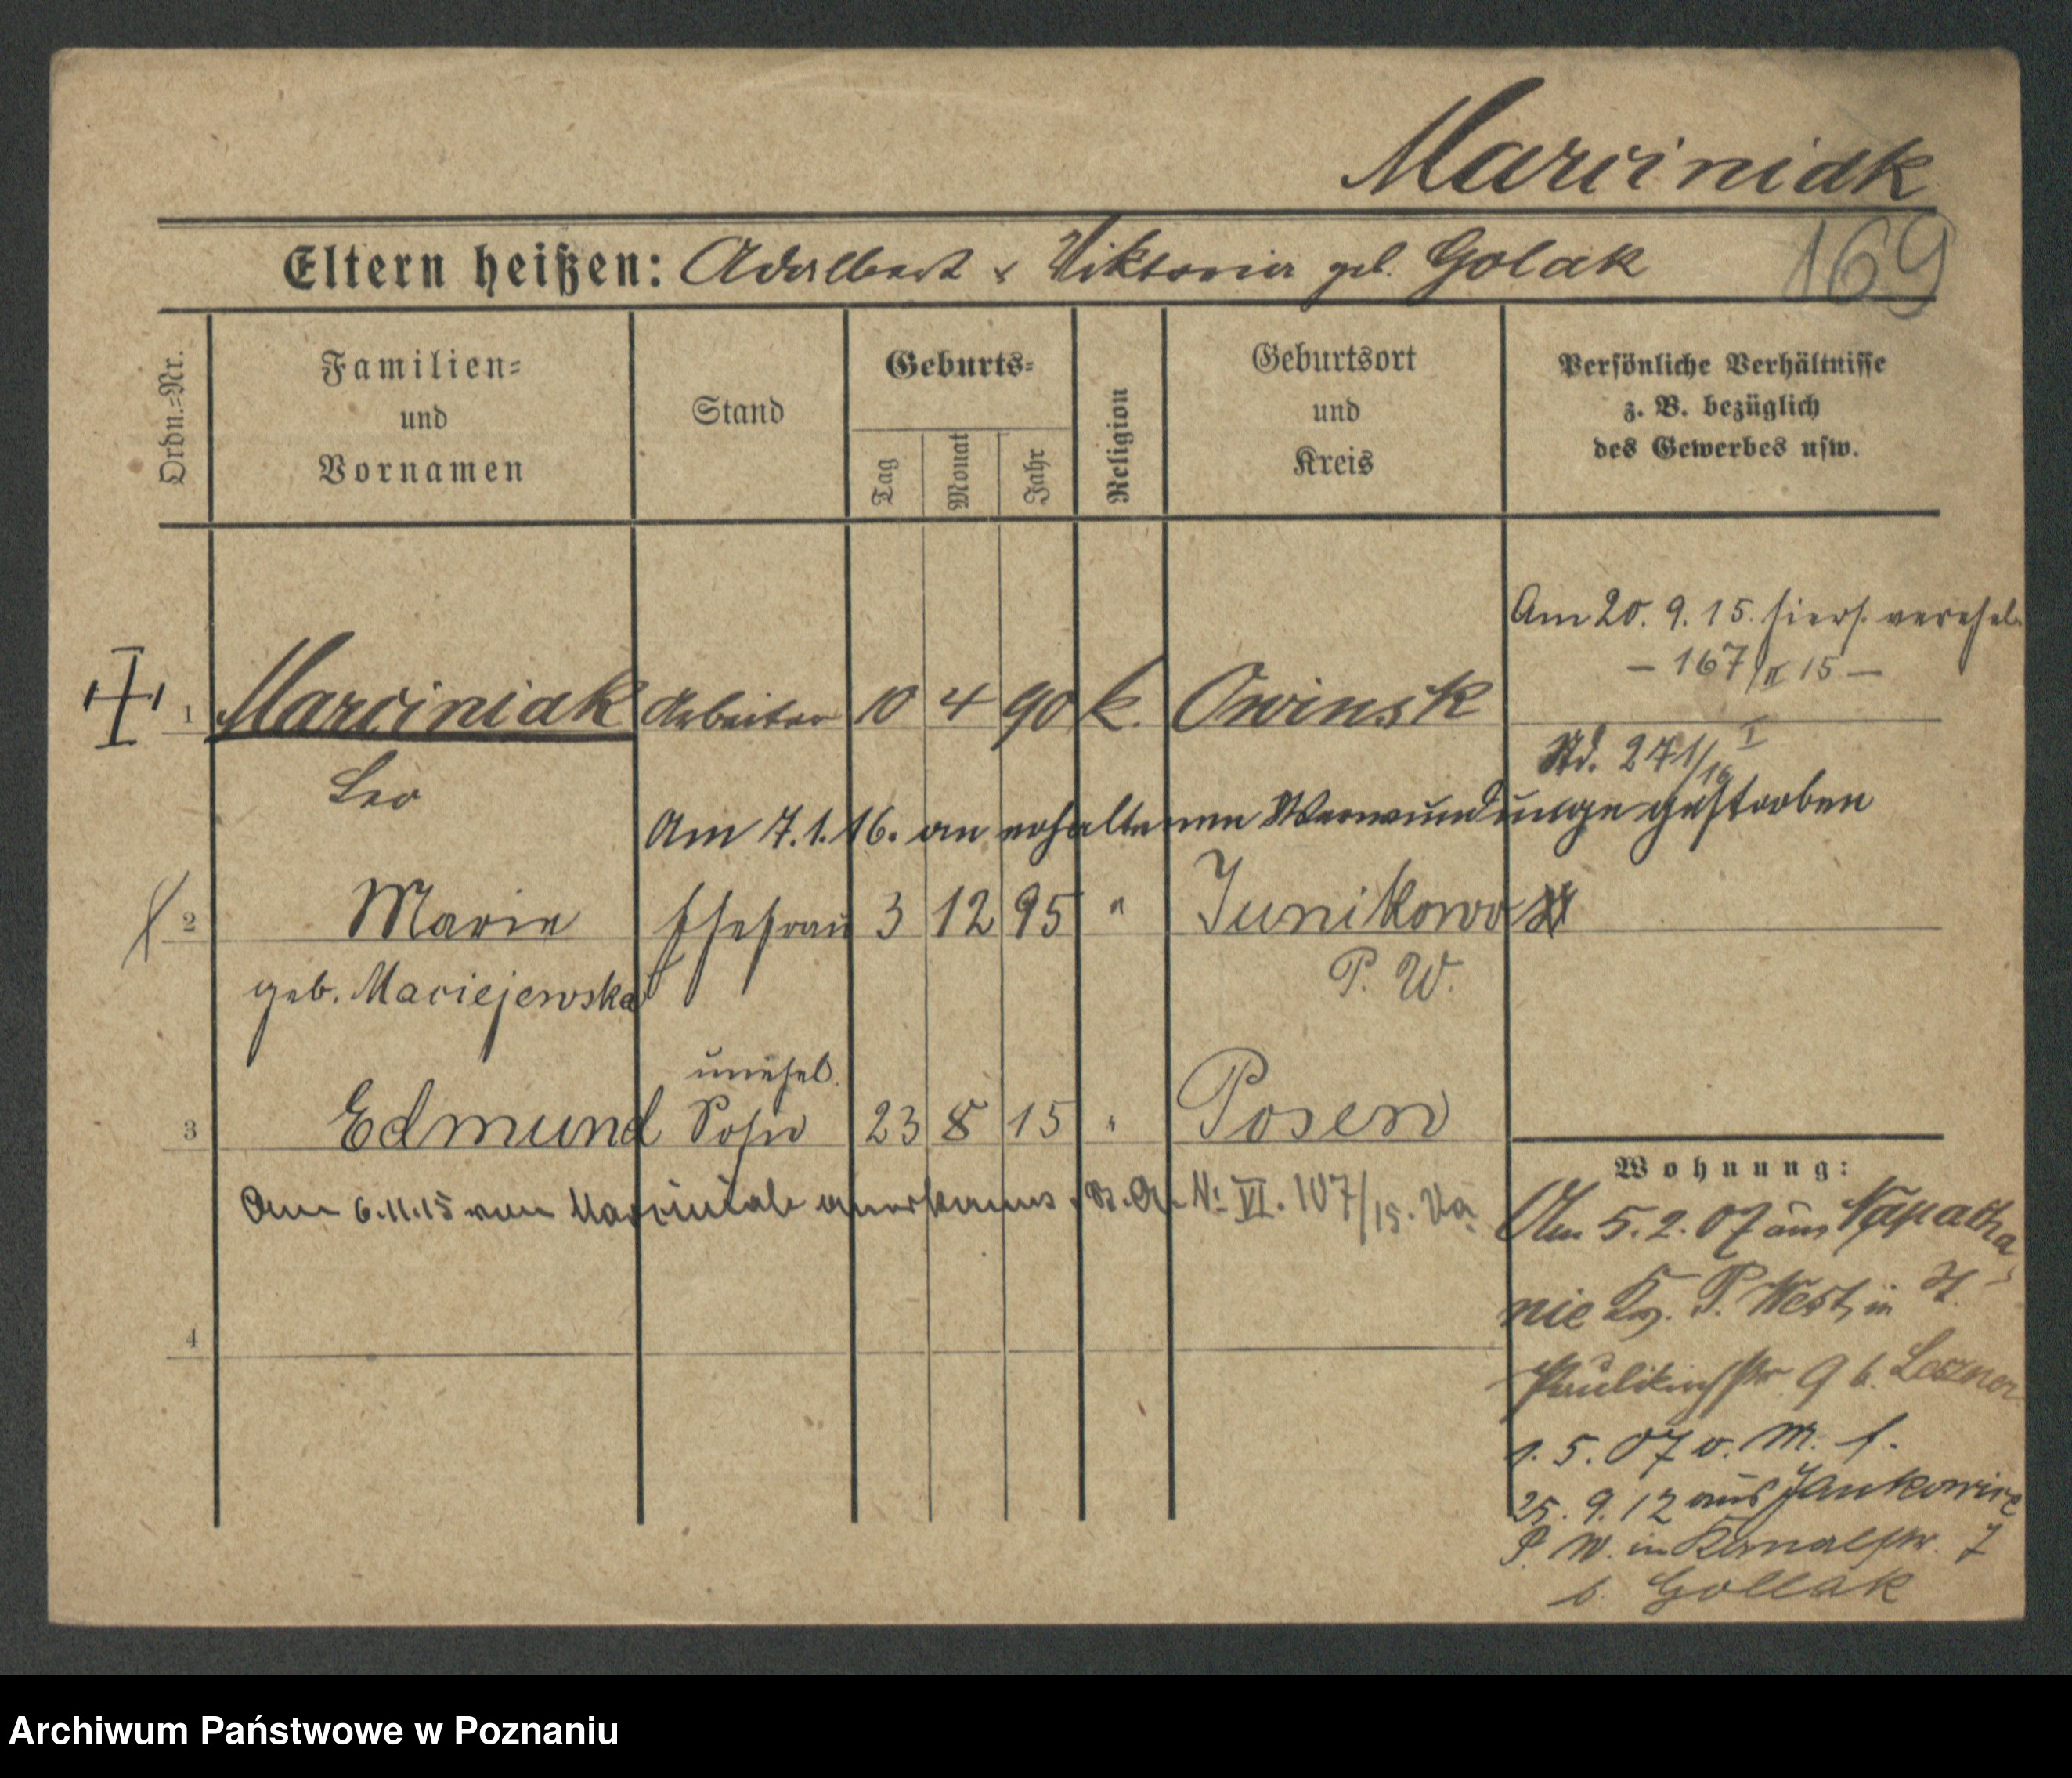 Marciniak
169
Eltern heißen: Adalbert & Viktoria geb. Golak
Ordn.-Nr.
Familien-
und
Vornamen
Stand
Geburts-
Tag
Monat
Jahr
Religion
Geburtsort
und
Kreis
Persönliche Verhältnisse
z. B. bezüglich
des Gewerbes usw.
Am 20. 9. 15. hiers. verehel.
– 167/II 15 –
1 Marciniak Arbeiter 10 4 90 k. Owinsk
Leo
Std. 271/16 I
Am 7.1.16. an erhaltenen Verwundunge gestorben
2 Marie Ehefrau 3 12 95 " Junikowo
P. W.
geb. Maciejewska
unehel.
3 Edmund Sohn 23 8 15 " Posen
Am 6.11.15 von anerkannt. No VI. 107/15.
4
Wohnung:
Am 5. 2. 07 aus Napacha-
nie Kr. P. West, in H.
Paulikirchstr. 9 b.
1. 5. 07 v. M. f.
25. 9. 12 aus Jankowice
P. W. in Kanalstr. 7
b. Gollak
Archiwum Państwowe w Poznaniu